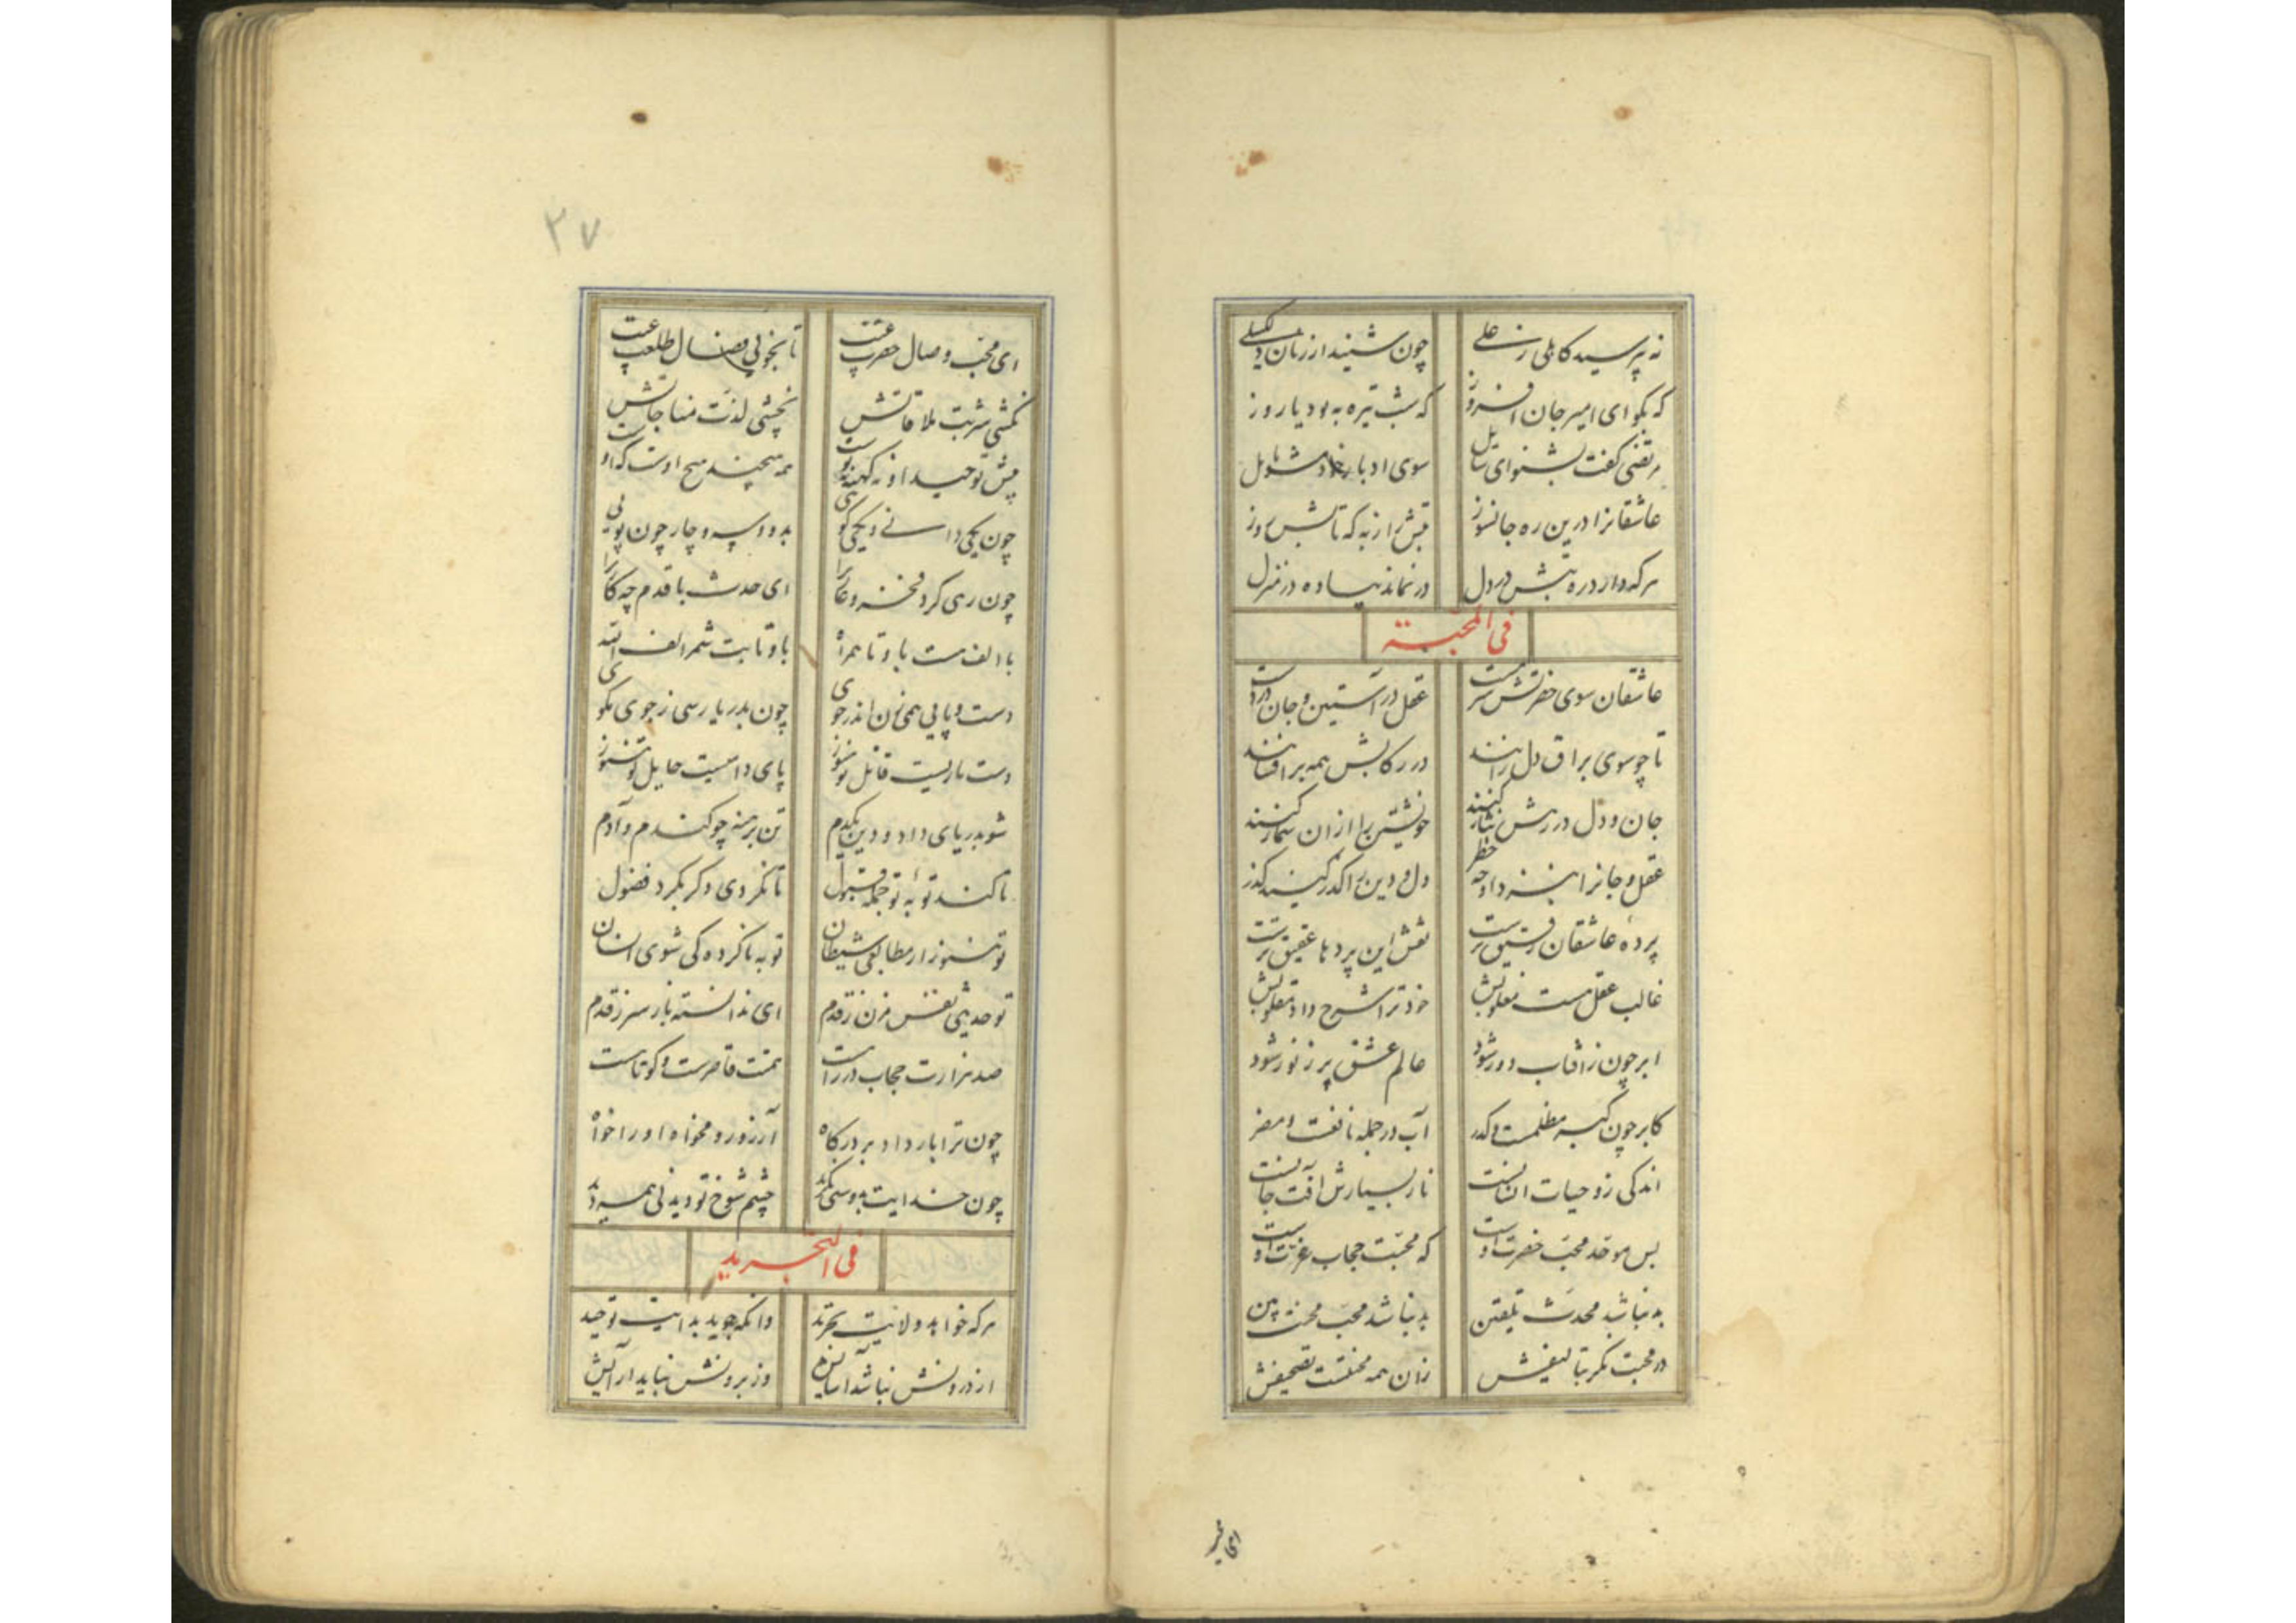 نه بپرسید کاهلی ز علی
چون شنید از زبان دلگسلی
که بگو ای امیر جان افروز
که شب تیره به بود یا روز
مرتضی گفت بشنو ای سایل
سوی ادبار خود مشو مایل
عاشقانرا درین ره جانسوز
تبش راز به که تابش روز
هرکه دارد ره تبش در دل
درنماند پیاده در منزل
فی المحبة
عاشقان سوی حضرتش سرمست
عقل در آستین و جان در دست
تا چو سوی براق دل رانند
در رکابش همه برافشانند
جان و دل در رهش نثار کنند
خویشتن را ازان شمار کنند
عقل و جانرا بنزد او چه خطر
دل و دین را
پرده عاشقان رقیق ترست
نقش این پردها عقیق ترست
غالب عقل هست مغلوبش
خود ترا شرح داد مقلوبش
ابر چون ز آفتاب دور شود
عالم عشق پر ز نور شود
کابر چون گبر مظلمست و کدر
آب در جمله نافعست و مضر
اندکی زو حیات انسانست
باز بسیارش آفت جانست
بس موحد محب حضرت اوست
که محبت حجاب عزت اوست
بد نباشد محدث تلقین
بد نباشد محب محنت بین
در محبت نگر بتالیفش
زان همه محنتست تصحیفش
ای محب وصال حضرت غیب
تا نجویی وصال طلعت غیب
نکشی شربت ملاقاتش
نچشی لذت مناجاتش
پیش توحید او نه کهنه نه نوست
همه هیچند هیچ اوست که اوست
چون یکی دانی و یکی گویی
بدو و سه و چار چون پویی
چون رهی کرد فخر و عار را
ای حدث با قدم چه کار را
با الف هست با و تا همراه
با و تا بت شمر الف الله
دست و پایی همی زن اندر جوی
چون بدریا رسی ز جوی مگوی
دست ماریست قاتل تو هنوز
پای دامیست حایل تو هنوز
شو بدریای داد و دین یکدم
تن برهنه چو گندم و آدم
تا کند توبه تو جمله قبول
تا نگردی دگر بگرد فضول
تو هنوز از مطابعی شیطان
توبه ناکرده کی شوی انسان
تو حدیثی نفس مزن ز قدم
ای ندانسته باز سر ز قدم
صد هزارت حجاب در راهست
همت قاصرست و کوتاهست
چون ترا بار داد بر درگاه
آرزو زو مخواه او را خواه
چون خدایت بدوستی بگزید
چشم شوخ تو دیدنی همه دید
فی التجرید
هرکه خواهد ولایت تجرید
وانکه جوید بدایت توحید
از درونش نباشد آسایش
وز برونش نباید آرایش
۳۷